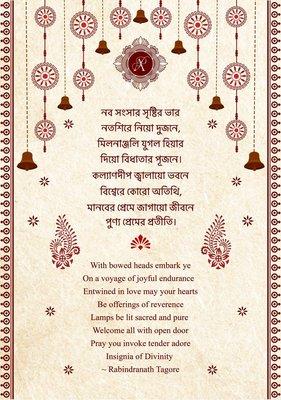 নব সংসার সৃষ্টির ভার
নতশিরে নিয়ো দুজনে,
মিলনাঞ্জলি যুগল হিয়ার
দিয়ো বিধাতার পূজনে।
কল্যাণদীপ জ্বালায়ো ভবনে
বিশ্বেরে কোরো অতিথি,
মানবের প্রেমে জাগায়ো জীবনে
পুণ্য প্রেমের প্রতীতি।
With bowed heads embark ye
On a voyage of joyful endurance
Entwined in love may your hearts
Be offerings of reverence
Lamps be lit sacred and pure
Welcome all with open door
Pray you invoke tender adore
Insignia of Divinity
~ Rabindranath Tagore